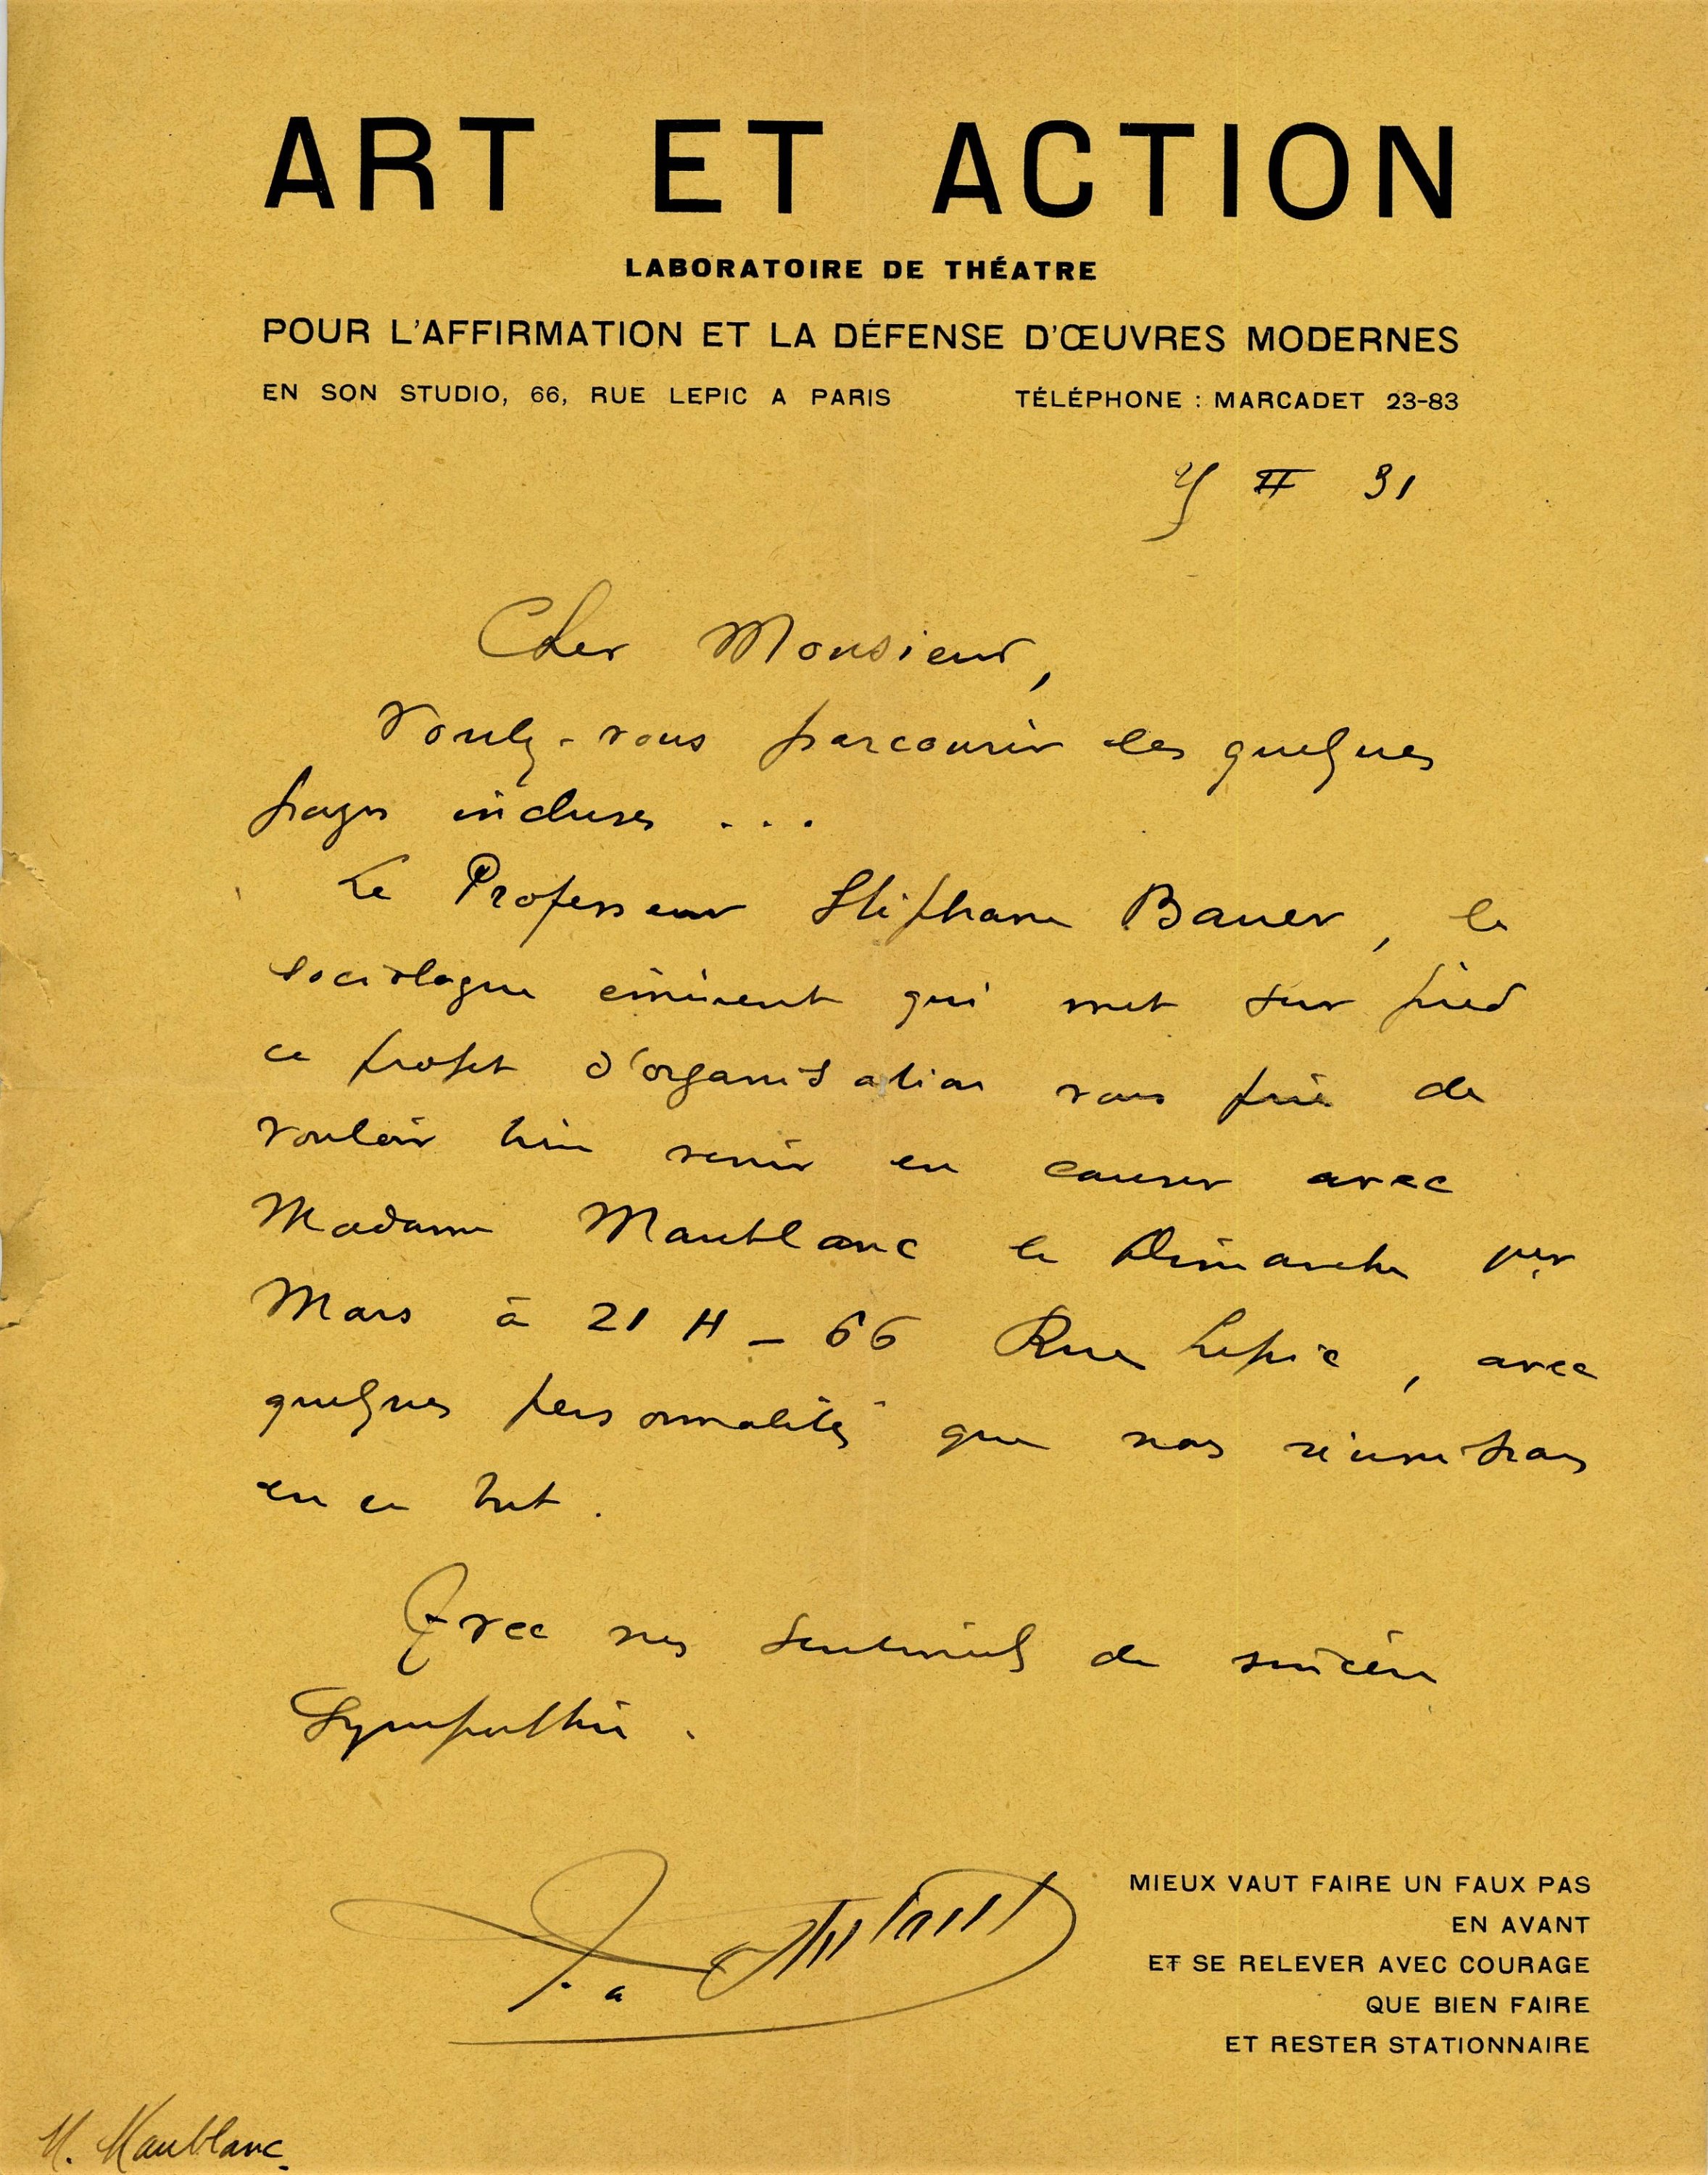 ART ET ACTION
LABORATOIRE DE THÉATRE
POUR L'AFFIRMATION ET LA DÉFENSE D'ŒUVRES MODERNES
EN SON STUDIO, 66, RUE LEPIC A PARIS TÉLÉPHONE : MARCADET 23-83
II 31
Cher Monsieur,
Voulez-vous parcourir les quelques
pages incluses ...
Le Professeur Stéphane Bauer, le
sociologue éminent qui met sur pied
ce projet d'organisation vous prie de
vouloir bien venir en causer avec
Madame Maublanc le Dimanche 1er
Mars à 21 H - 66 Rue Lepic, avec
quelques personnalités que nous réunissons
en ce but.
Avec nos sentiments de sincère
Sympathie.
MIEUX VAUT FAIRE UN FAUX PAS
EN AVANT
ET SE RELEVER AVEC COURAGE
QUE BIEN FAIRE
ET RESTER STATIONNAIRE
M. Maublanc.